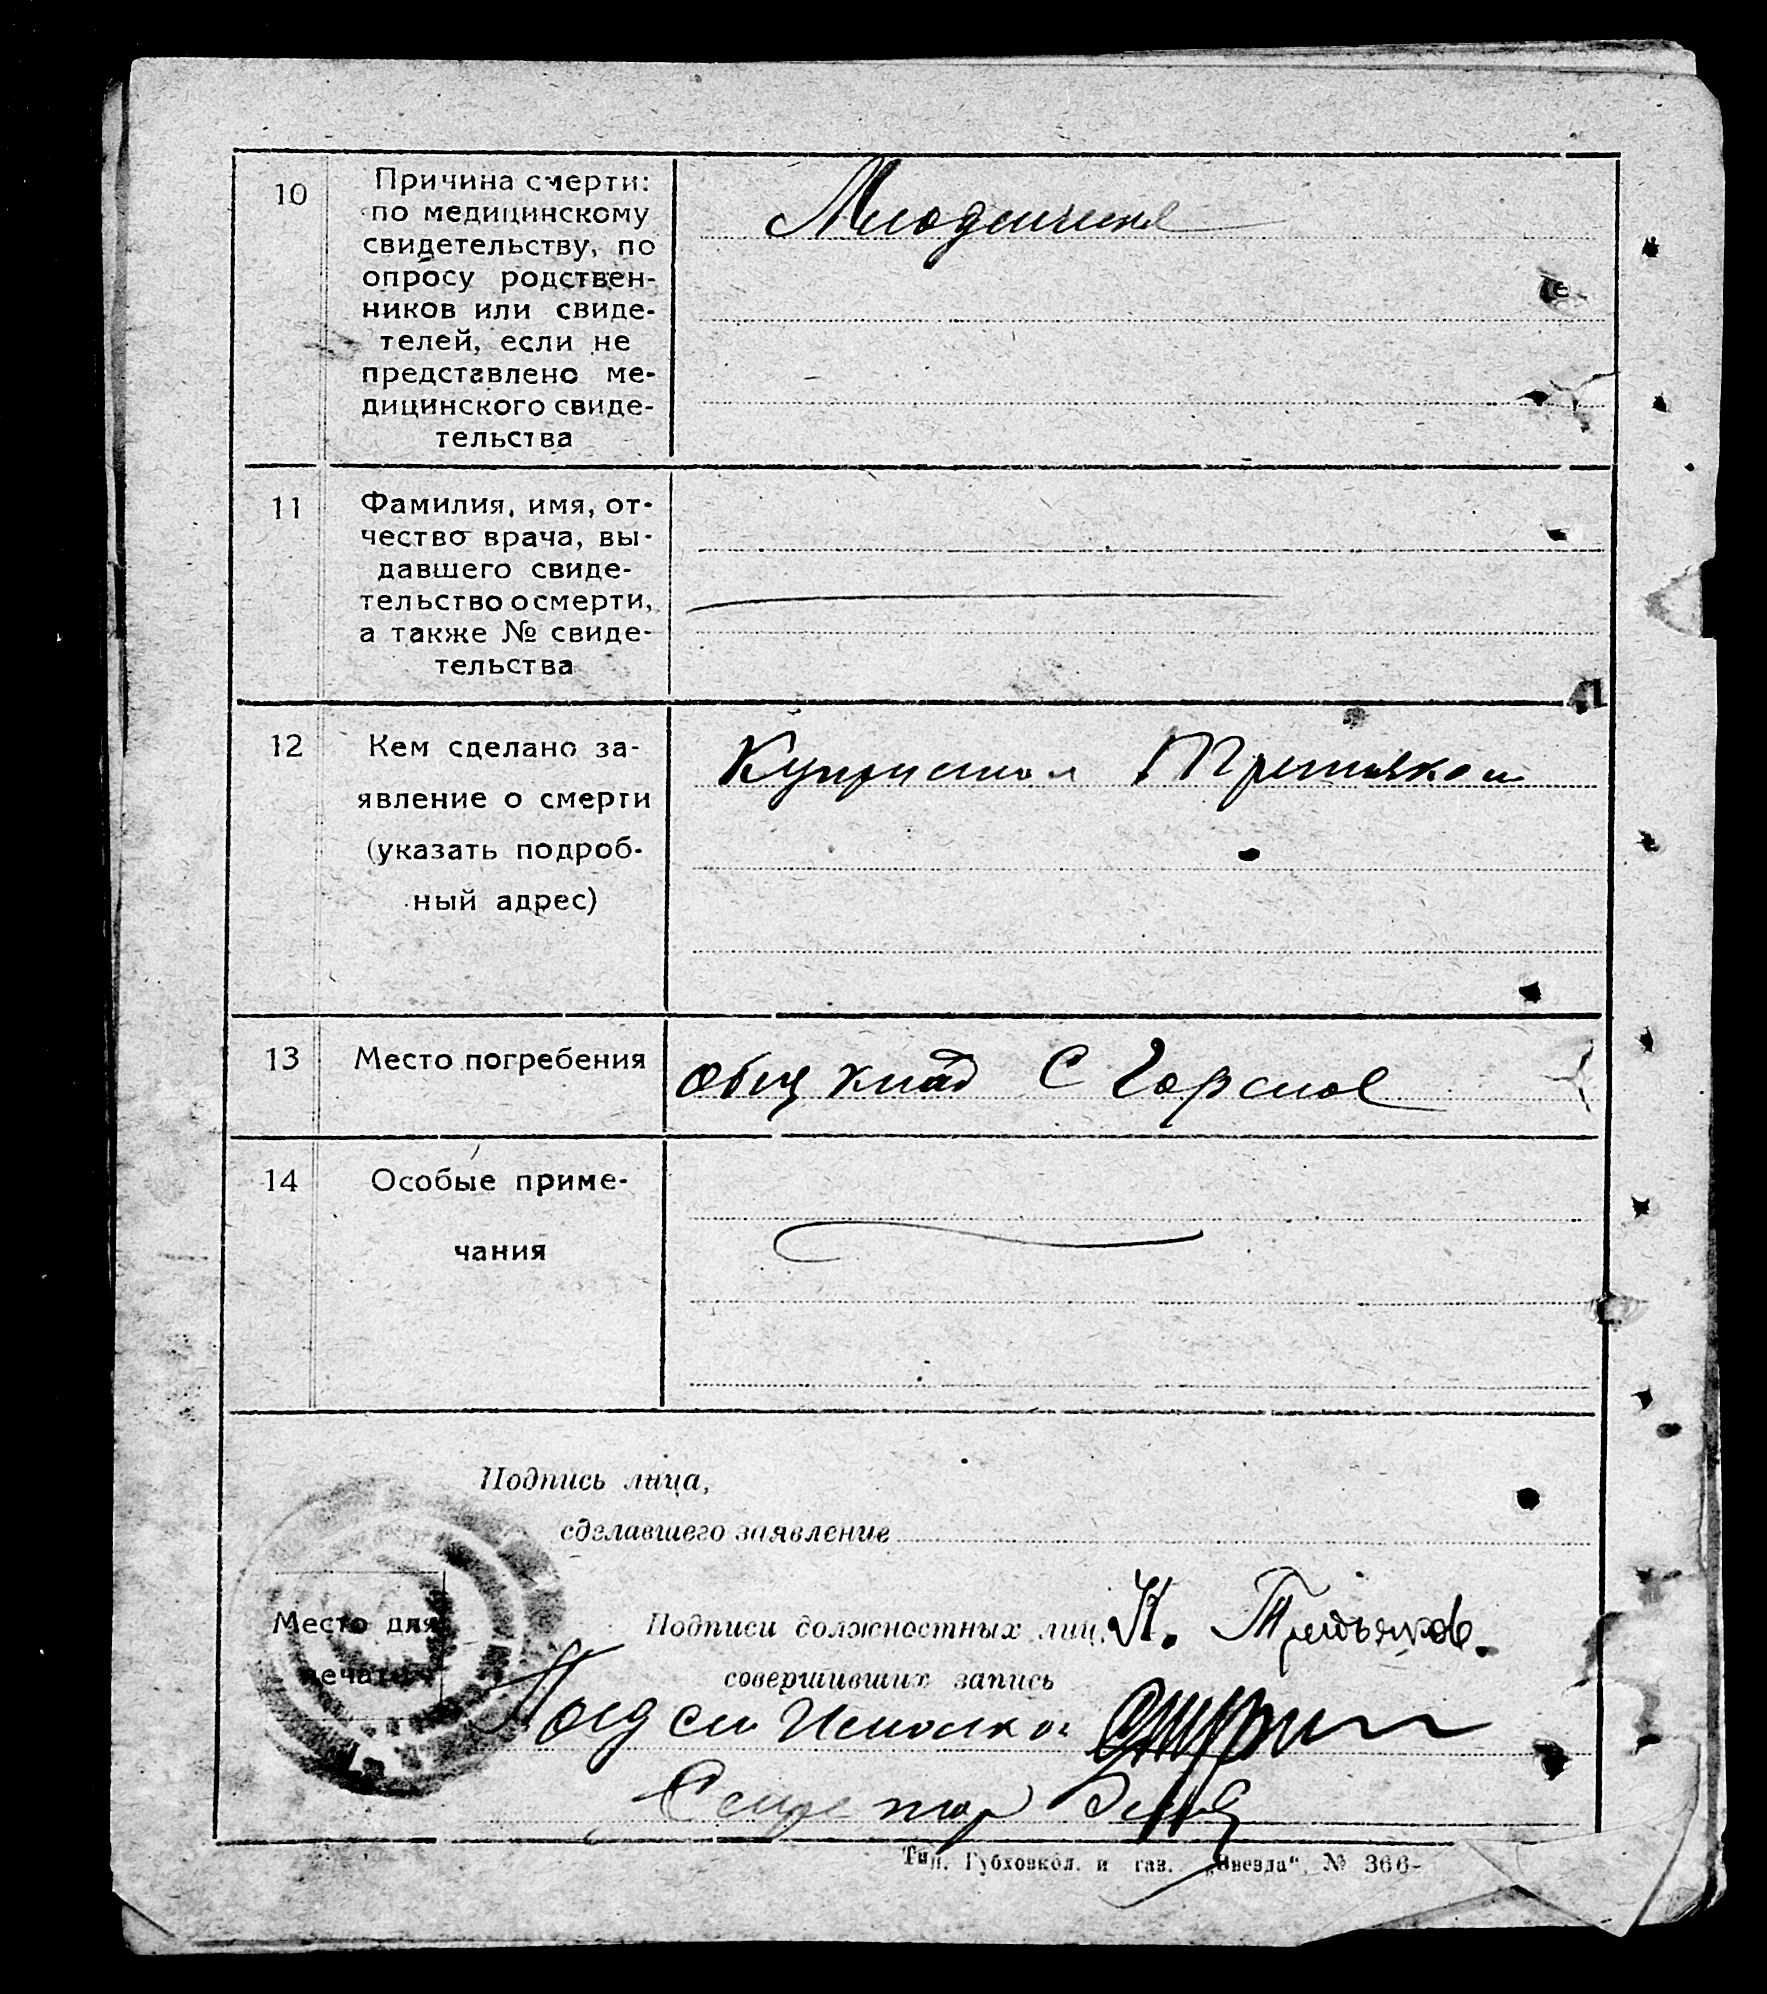 10
Причина смерти:
по медицинскому
свидетельству, по
опросу родствен-
ников или свиде-
телей, если не
представлено ме-
дицинского свиде-
тельства
11
Фамилия, имя, от-
чество врача, вы-
давшего свиде-
тельство о смерти,
а также № свиде-
тельства
12
Кем сделано за-
явление о смерти
(указать подроб-
ный адрес)
13
Место погребения
общ клад С
14
Особые приме-
чания
Подпись лица,
сделавшего заявление
Место для
печати
Подписи должностных лиц, К. Третьяков.
совершивших запись
Тип. Губховкол. и газ. „Звезда“. № 366-